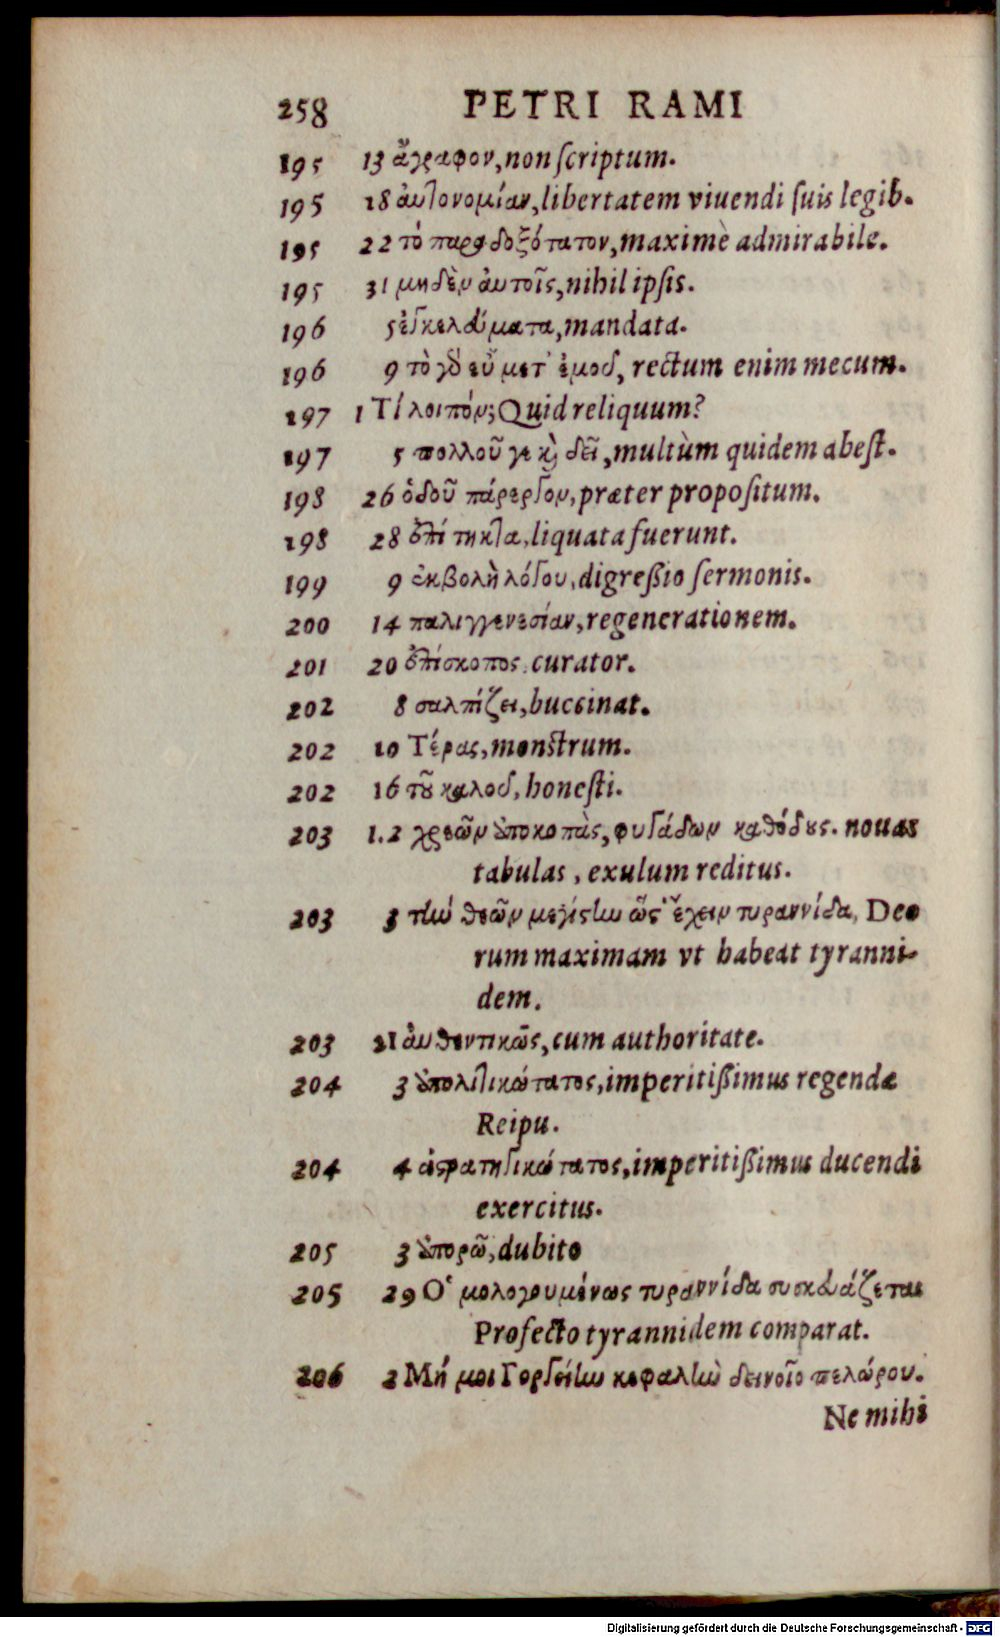 258 PETRI RAMI
195 13 ἄγραφον, non ſcriptum.
195 18 ἀυτονομίαν, libertatem viuendi ſuis legib.
195 22 τὸ παραδοξότατον, maximè admirabile.
195 31 μηδὲν ἀυτοῖς, nihil ipſis.
196 5 ἐγκελεύματα, mandata.
196 9 τὸ γὸ εὖ μετ' ἐμοῦ, rectum enim mecum.
197 1 Τί λοιπόν; Quid reliquum?
197 5 πολλοῦ γε κὶ δεῖ, multùm quidem abeſt.
198 26 ὁδοῦ πάρεργον, præter propoſitum.
198 28 ἐπί τηκτα, liquata fuerunt.
199 9 ἐκβολὴ λόγου, digreßio ſermonis.
200 14 παλιγγενεσίαν, regenerationem.
201 20 ἐπίσκοπος, curator.
202 8 σαλπίζει, buccinat.
202 10 Τέρας, monſtrum.
202 16 τοῦ καλοῦ, honeſti.
203 1.2 χρεῶν ἀποκοπὰς, φυγάδων καθόδους. nouas
tabulas, exulum reditus.
203 3 τὴν θεῶν μεγίστην ὥστ' ἔχειν τυραννίδα, Deo
rum maximam vt habeat tyranni-
dem.
203 21 ἀυθεντικῶς, cum authoritate.
204 3 ἀπολιτικώτατος, imperitißimus regendæ
Reipu.
204 4 ἀστρατηγικώτατος, imperitißimus ducendi
exercitus.
205 3 ἀπορῶ, dubito
205 29 Ὁ μολογουμένως τυραννίδα συσκευάζεται
Profecto tyrannidem comparat.
206 2 Μή μοι Γοργείην κεφαλὴν δεινοῖο πελώρου.
Ne mihi
Digitalisierung gefördert durch die Deutsche Forschungsgemeinschaft - DFG